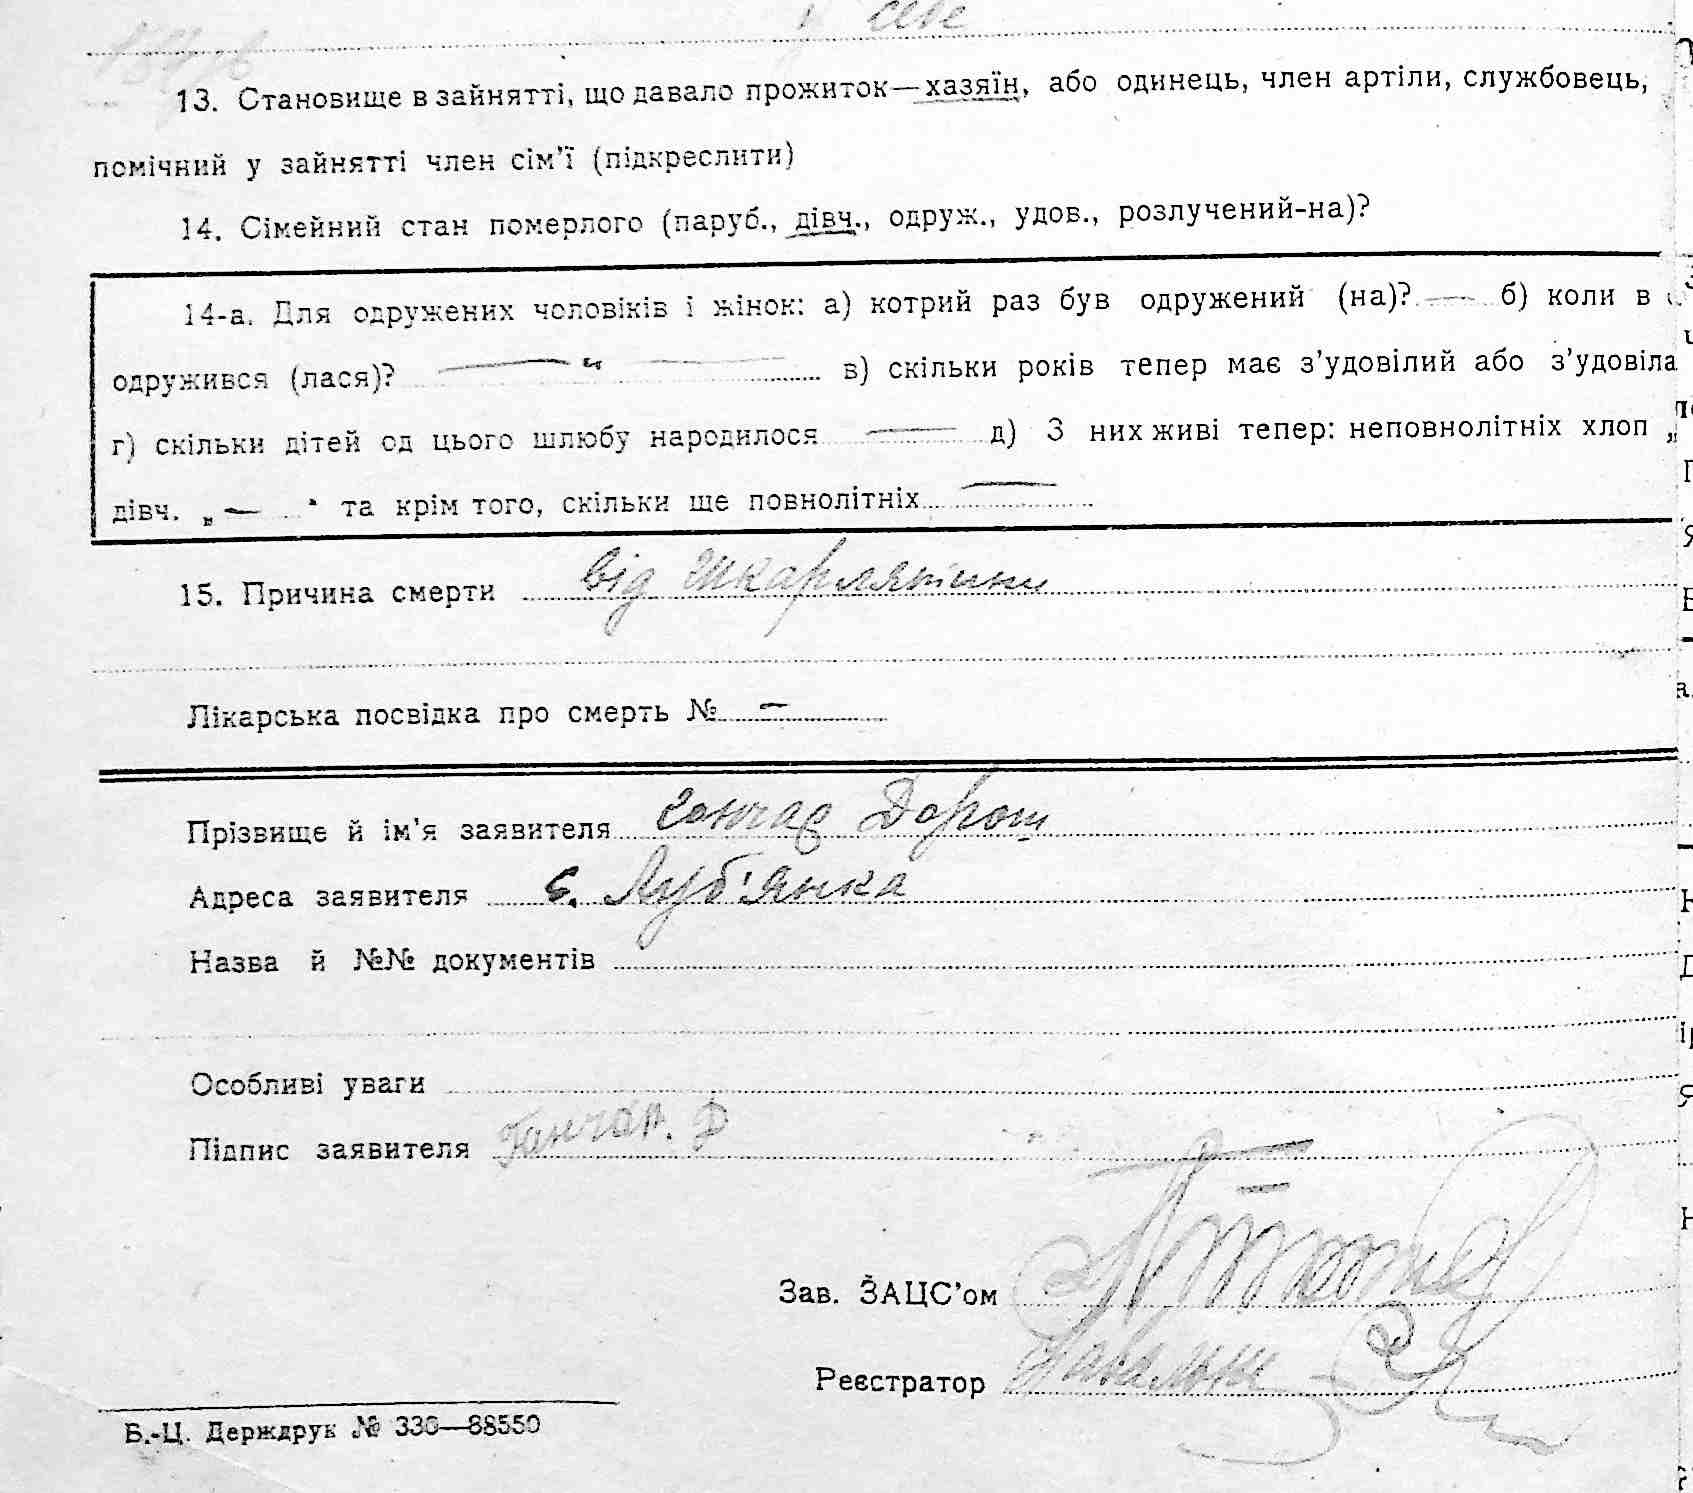 у себе
13. Становище в зайнятті, що давало прожиток—хазяїн, або одинець, член артіли, службовець,
помічний у зайнятті член сім'ї (підкреслити)
14. Сімейний стан померлого (паруб., дівч., одруж., удов., розлучений-на)?
14-а. Для одружених чоловіків і жінок: а) котрий раз був одружений (на)? — б) коли в
одружився (лася)? — „ — в) скільки років тепер має з'удовілий або з'удовіла
г) скільки дітей од цього шлюбу народилося — д) З них живі тепер: неповнолітніх хлоп „
дівч. „ — " та крім того, скільки ще повнолітніх —
15. Причина смерти від шкарлятини
Лікарська посвідка про смерть № —
Прізвище й ім'я заявителя Гончар Дорош
Адреса заявителя с. Луб'янка
Назва й №№ документів
Особливі уваги
Підпис заявителя Гончар. Д
Зав. ЗАЦС'ом
Реєстратор
Б.-Ц. Держдрук № 330—88550